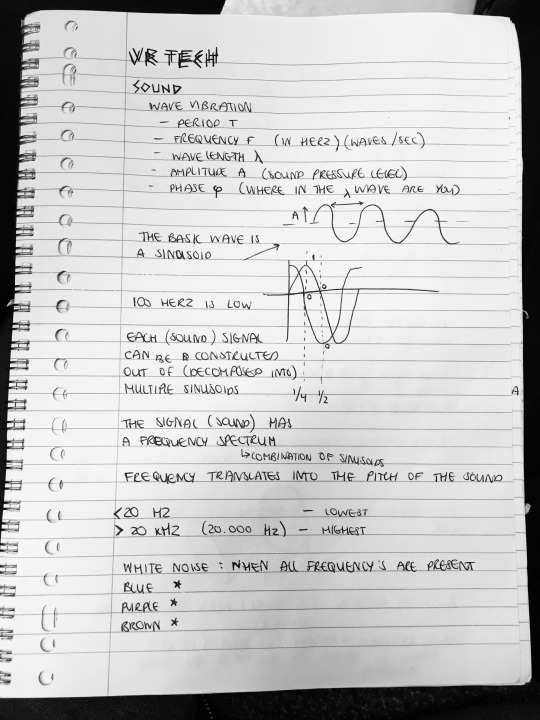 VR TECH
SOUND
WAVE VIBRATION
- PERIOD T
- FREQUENCY F (IN HERZ) (WAVES/SEC)
- WAVELENGTH λ
- AMPLITUDE A (SOUND PRESSURE LEVEL)
- PHASE φ (WHERE IN THE WAVE ARE YOU)
A λ
THE BASIC WAVE IS
A SINUSOID
1
0 0
100 HERZ IS LOW
0
EACH (SOUND) SIGNAL
CAN BE CONSTRUCTED
OUT OF (DECOMPOSED INTO)
MULTIPLE SINUSOIDS
1/4 1/2
THE SIGNAL (SOUND) HAS
A FREQUENCY SPECTRUM
↳COMBINATION OF SINUSOIDS
FREQUENCY TRANSLATES INTO THE PITCH OF THE SOUND
<20 HZ - LOWEST
> 20 KHZ (20.000 HZ) - HIGHEST
WHITE NOISE : WHEN ALL FREQUENCY'S ARE PRESENT
BLUE *
PURPLE *
BROWN *